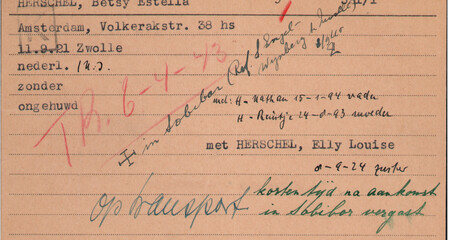 HERSCHEL, Betsy Estella
Amsterdam, Volkerakstr. 38 hs
11.9.21 Zwolle
nederl. (N.I.)
zonder
ongehuwd
T.B. 6-4-43
✠ in Sobibor (Prof. S. Engel-
Wijnberg
met: H- Nathan 15-1-94 vader
H- Reintje 24-8-93 moeder
met HERSCHEL, Elly Louise
8-9-24 zuster
op transport
korten tijd na aankomst
in Sobibor vergast